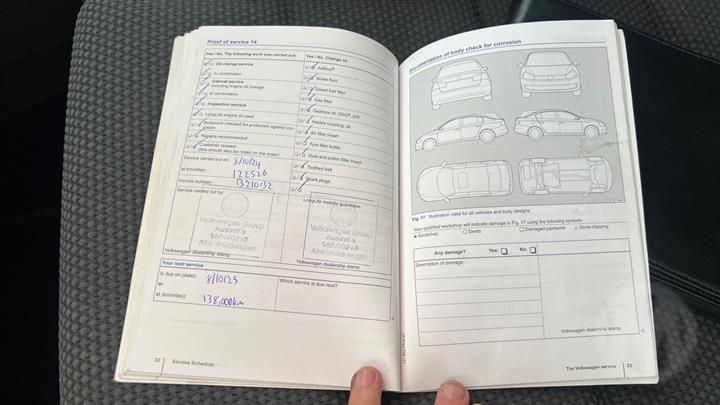 Proof of service 14
Yes / No. The following work was carried out:
Yes / No. Change of:
Oil change service
AdBlue®
in combination
Brake fluid
Interval service
including engine oil change
Diesel fuel filter
in combination
Gas filter
Inspection service
Gearbox oil: DSG®, ATF
LongLife engine oil used
Haldex coupling: oil
Bodywork checked for protection against cor-
rosion
Air filter insert
Repairs recommended
Tyre filler bottle
Customer request
(this should also be noted on the order)
Dust and pollen filter insert
Toothed belt
Spark plugs
Service carried out on: 8/10/24
at km/miles: 122526
Invoice number: 13210132
Service carried out by:
LongLife mobility guarantee:
Volkswagen Group
Australia
Volkswagen dealership stamp
Volkswagen Group
Australia
Volkswagen dealership stamp
Your next service
Is due on (date): 8/10/25
or
at (km/miles): 138,000km
Which service is due next?
32
Service Schedule
Documentation of body check for corrosion
Fig. 17 Illustration valid for all vehicles and body designs
Your qualified workshop will indicate damage in Fig. 17 using the following symbols:
Scratches
Dents
Damaged paintwork
Stone chipping
Any damage?
Yes:
No:
Description of damage:
Volkswagen dealership stamp
The Volkswagen service
33